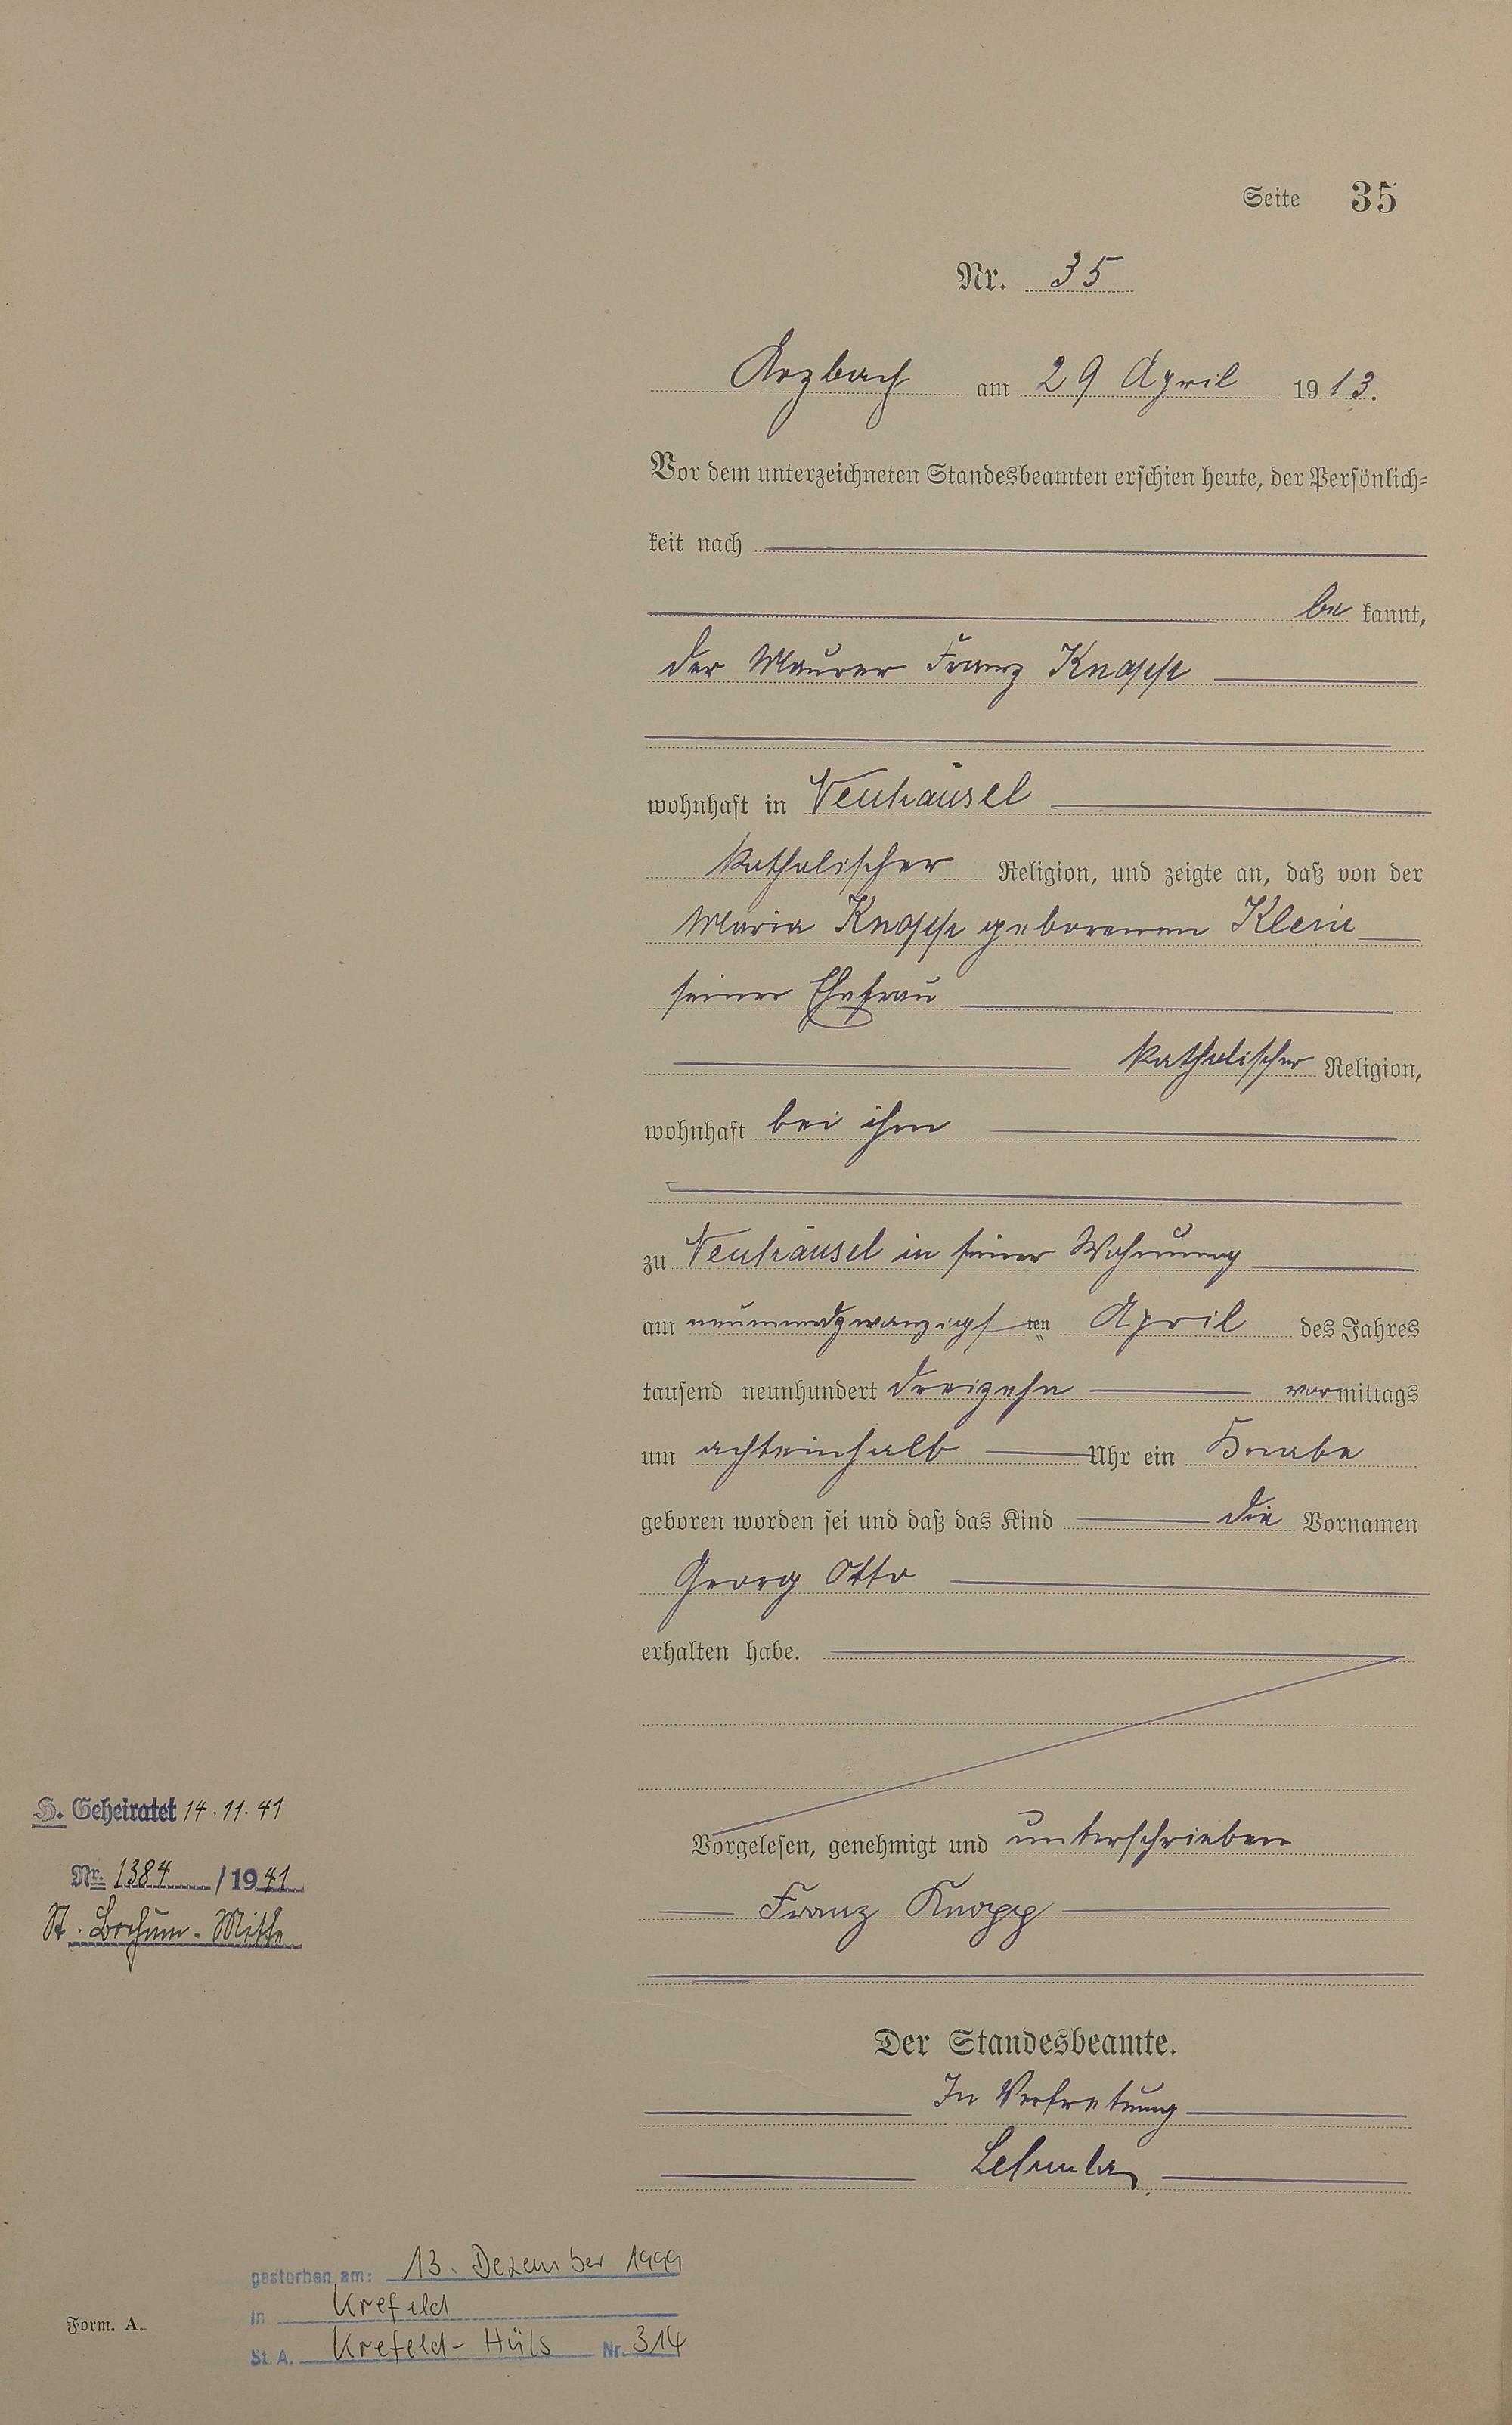 Seite 35
Nr. 35
Arzbach am 29 April 1913.
Vor dem unterzeichneten Standesbeamten erschien heute, der Persönlich=
keit nach
be kannt,
der Maurer Franz Knopp
wohnhaft in Neuhäusel
katholischer Religion, und zeigte an, daß von der
Maria Knopp geborenen Klein
seiner Ehefrau
katholischer Religion,
wohnhaft bei ihm
zu Neuhäusel in seiner Wohnung
am neunundzwanzigsten April des Jahres
tausend neunhundert dreizehn vormittags
um achteinhalb Uhr ein Knabe
geboren worden sei und daß das Kind die Vornamen
Georg Otto
erhalten habe.
H. Geheiratet 14.11.41
Nr. 1384 / 1941
St. Bochum-Mitte
Vorgelesen, genehmigt und unterschrieben
Franz Knopp
Der Standesbeamte.
In Vertretung
gestorben am: 13. Dezember 1999
in Krefeld
St. A. Krefeld-Hüls Nr. 314
Form. A.